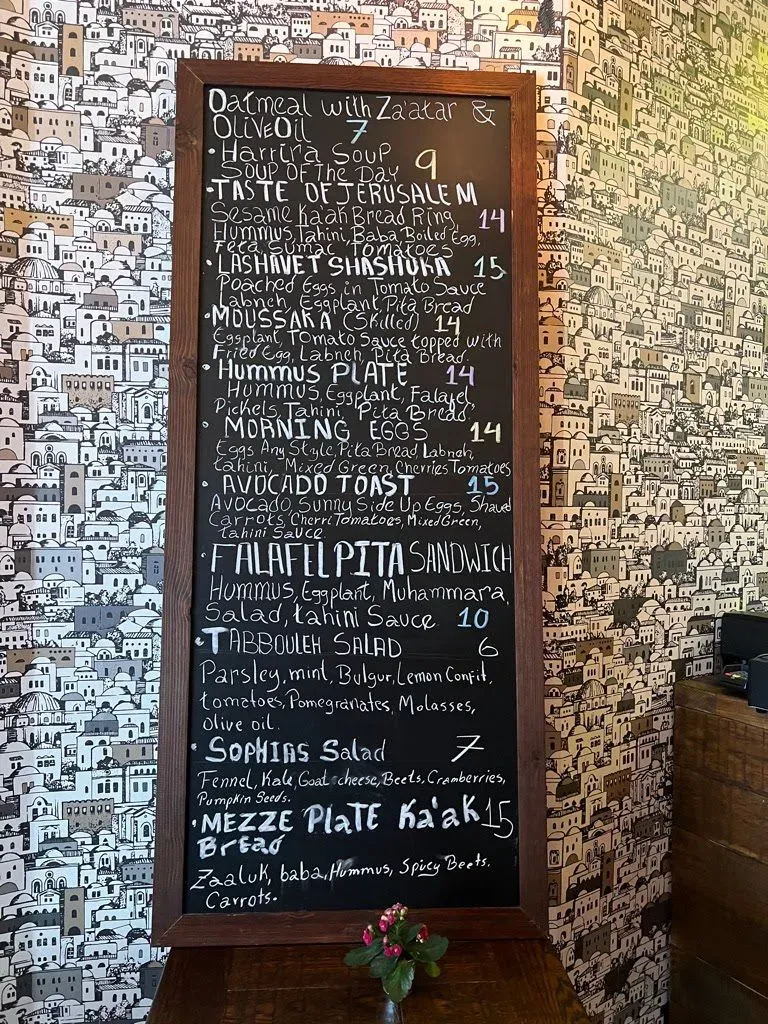 Oatmeal with Za'atar &
Olive Oil 7
• Harrira Soup
Soup Of The Day 9
• TASTE OF JERUSALEM
Sesame Ka'ak Bread Ring, 14
Hummus, Tahini, Baba, Boiled Egg,
Feta, Sumac Tomatoes
• LASHAVET SHASHUKA 15
Poached Eggs in Tomato Sauce
Labneh, Eggplant, Pita Bread
• MOUSSAKA (Skilled) 14
Eggplant, Tomato Sauce topped with
Fried Egg, Labneh, Pita Bread.
• Hummus PLATE 14
Hummus, Eggplant, Falafel,
Pickels, Tahini, Pita Bread
• MORNING EGGS 14
Eggs Any Style, Pita Bread, Labneh,
tahini, Mixed Green, Cherries Tomatoes
• AVOCADO TOAST 15
Avocado, Sunny Side Up Eggs, Shaved
Carrots, Cherri Tomatoes, Mixed Green,
tahini Sauce.
• FALAFEL PITA SANDWICH
Hummus, Eggplant, Muhammara,
Salad, tahini Sauce 10
• TABBOULEH SALAD 6
Parsley, mint, Bulgur, Lemon Confit,
tomatoes, Pomegranates, Molasses,
Olive oil.
• SOPHIAS Salad 7
Fennel, Kale, Goat cheese, Beets, Cranberries,
Pumpkin Seeds.
• MEZZE PLaTE Ka'aK 15
Bread
Zaaluk, baba, Hummus, Spicy Beets.
Carrots.